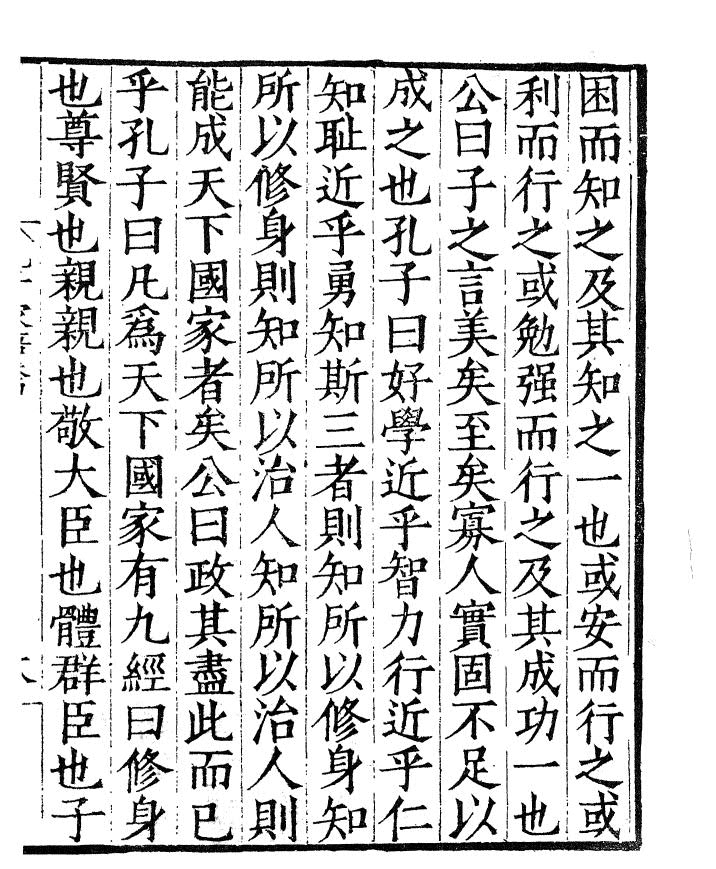 困而知之及其知之一也或安而行之或
利而行之或勉强而行之及其成功一也
公曰子之言美矣至矣寡人實固不足以
成之也孔子曰好學近乎智力行近乎仁
知耻近乎勇知斯三者則知所以修身知
所以修身則知所以治人知所以治人則
能成天下國家者矣公曰政其盡此而已
乎孔子曰凡爲天下國家有九經曰修身
也尊賢也親親也敬大臣也體群臣也子